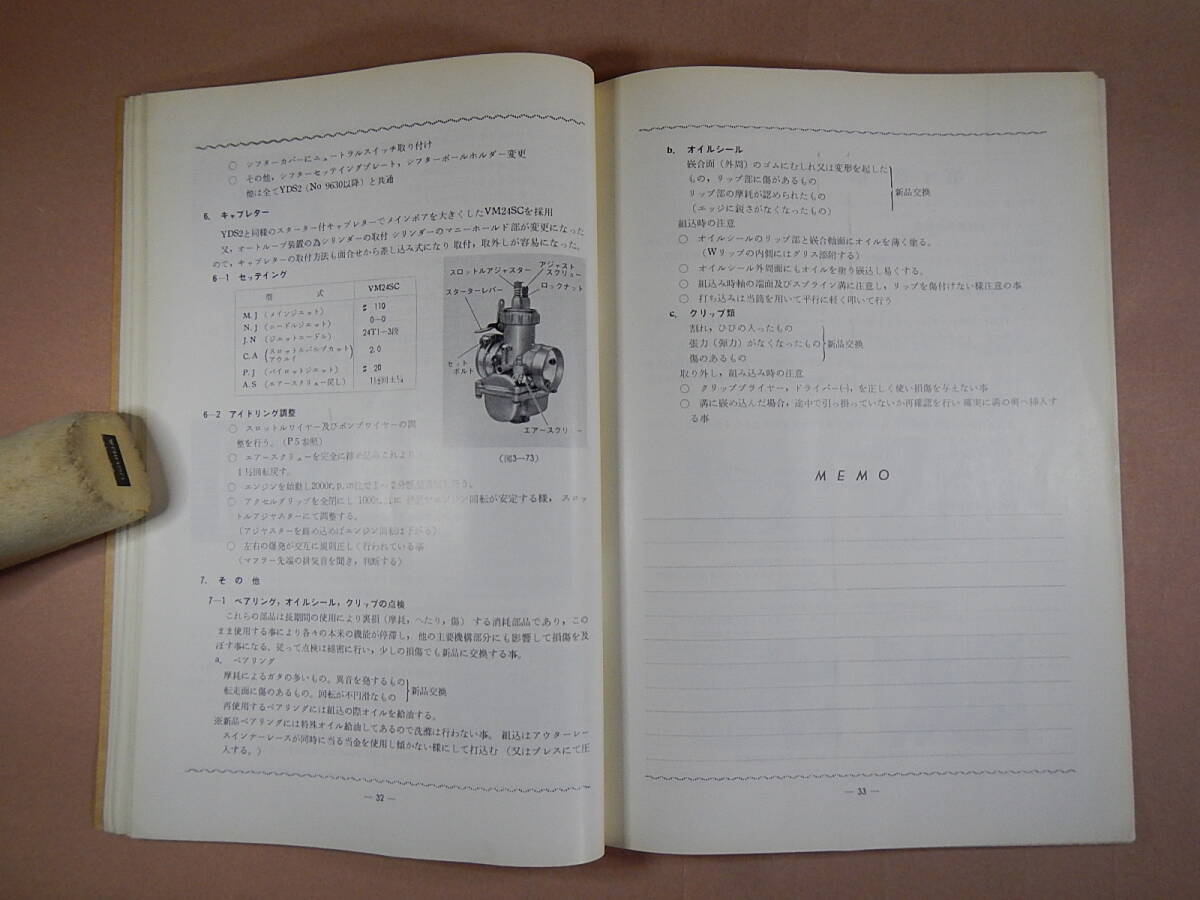 ○ シフターカバーにニュートラルスイッチ取り付け
○ その他，シフターセッテイングプレート，シフターポールホルダー変更
他は全てYDS2（No 9630以降）と共通
6. キャブレター
YDS2と同様のスターター付キャブレターでメインボアを大きくしたVM24SCを採用
又，オートルーブ装置の為シリンダーの取付 シリンダーのマニーホールド部が変更になった
ので，キャブレターの取付方法も面合せから差し込み式になり 取付，取外しが容易になった。
6―1 セッテイング
型 式 VM24SC
M.J（メインジエット） ♯ 110
N.J（ニードルジエット） 0―0
J.N（ジエットニードル） 24T1―3段
C.A（スロットルバルブカットアウエイ） 2.0
P.J（パイロットジエット） ♯ 20
A.S（エアースクリュー戻し） 1½回±¼
スロットルアジャスター
アジャストスクリュー
スターターレバー
ロックナット
セットボルト
エアースクリー
（図3―73）
6―2 アイドリング調整
○ スロットルワイヤー及びポンプワイヤーの調
整を行う。（P5参照）
○ エアースクリューを完全に締め込みこれより
1½回転戻す。
○ エンジンを始動し2000r.p.m
○ アクセルグリップを全閉にし 1000r. エンジン回転が安定する様，スロッ
トルアジャスターにて調整する。
（アジャスターを締め込めばエンジン回転は下がる）
○ 左右の爆発が交互に規則正しく行われている事
（マフラー先端の排気音を聞き，判断する）
7. その他
7―1 ベアリング，オイルシール，クリップの点検
これらの部品は長期間の使用により衰損（摩耗，へたり，傷）する消耗部品であり，この
まま使用する事により各々の本来の機能が停滞し，他の主要機構部分にも影響して損傷を及
ぼす事になる。従って点検は綿密に行い，少しの損傷でも新品に交換する事。
a. ベアリング
摩耗によるガタの多いもの。異音を発するもの
転走面に傷のあるもの。回転が不円滑なもの
新品交換
再使用するベアリングには組込の際オイルを給油する。
※新品ベアリングには特殊オイル給油してあるので洗滌は行わない事。組込はアウターレー
スインナーレースが同時に当る当金を使用し傾かない様にして打込む（又はプレスにて圧
入する。）
―32―
b. オイルシール
嵌合面（外周）のゴムにむしれ又は変形を起した
もの，リップ部に傷があるもの
リップ部の摩耗が認められたもの
（エッジに鋭さがなくなったもの）
新品交換
組込時の注意
○ オイルシールのリップ部と嵌合軸面にオイルを薄く塗る。
（Wリップの内側にはグリス部附する）
○ オイルシール外周面にもオイルを塗り嵌込し易くする。
○ 組込み時軸の端面及びスプライン溝に注意し，リップを傷付けない様注意の事
○ 打ち込みは当筒を用いて平行に軽く叩いて行う
c. クリップ類
割れ，ひびの入ったもの
張力（弾力）がなくなったもの
傷のあるもの
新品交換
取り外し，組み込み時の注意
○ クリッププライヤー，ドライバー(―)，を正しく使い損傷を与えない事
○ 溝に嵌め込んだ場合，途中で引っ掛っていないか再確認を行い 確実に溝の奥へ挿入す
る事
MEMO
―33―